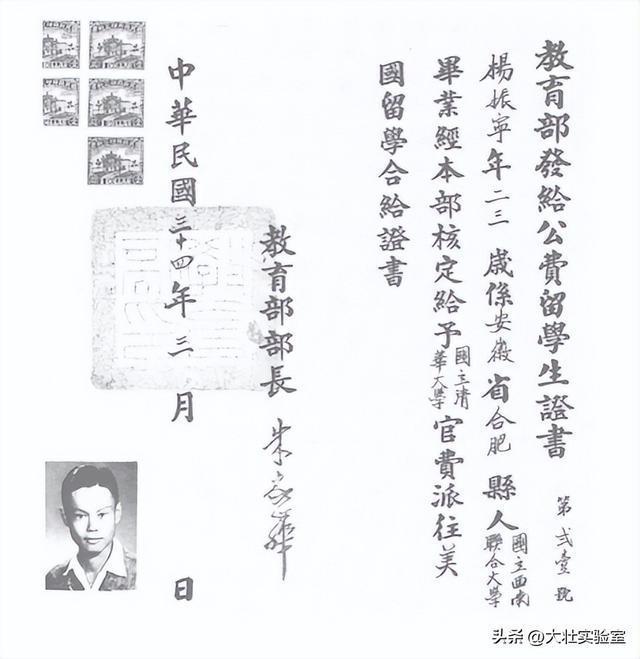 教育部發給公費留學生證書 第貳壹號
楊振寧年二三歲係安徽省合肥縣人國立西南聯合大學
畢業經本部核定給予國立清華大學官費派往美
國留學合給證書
教育部部長 朱家驊
中華民國三十四年三月 日
头条 @大壮实验室